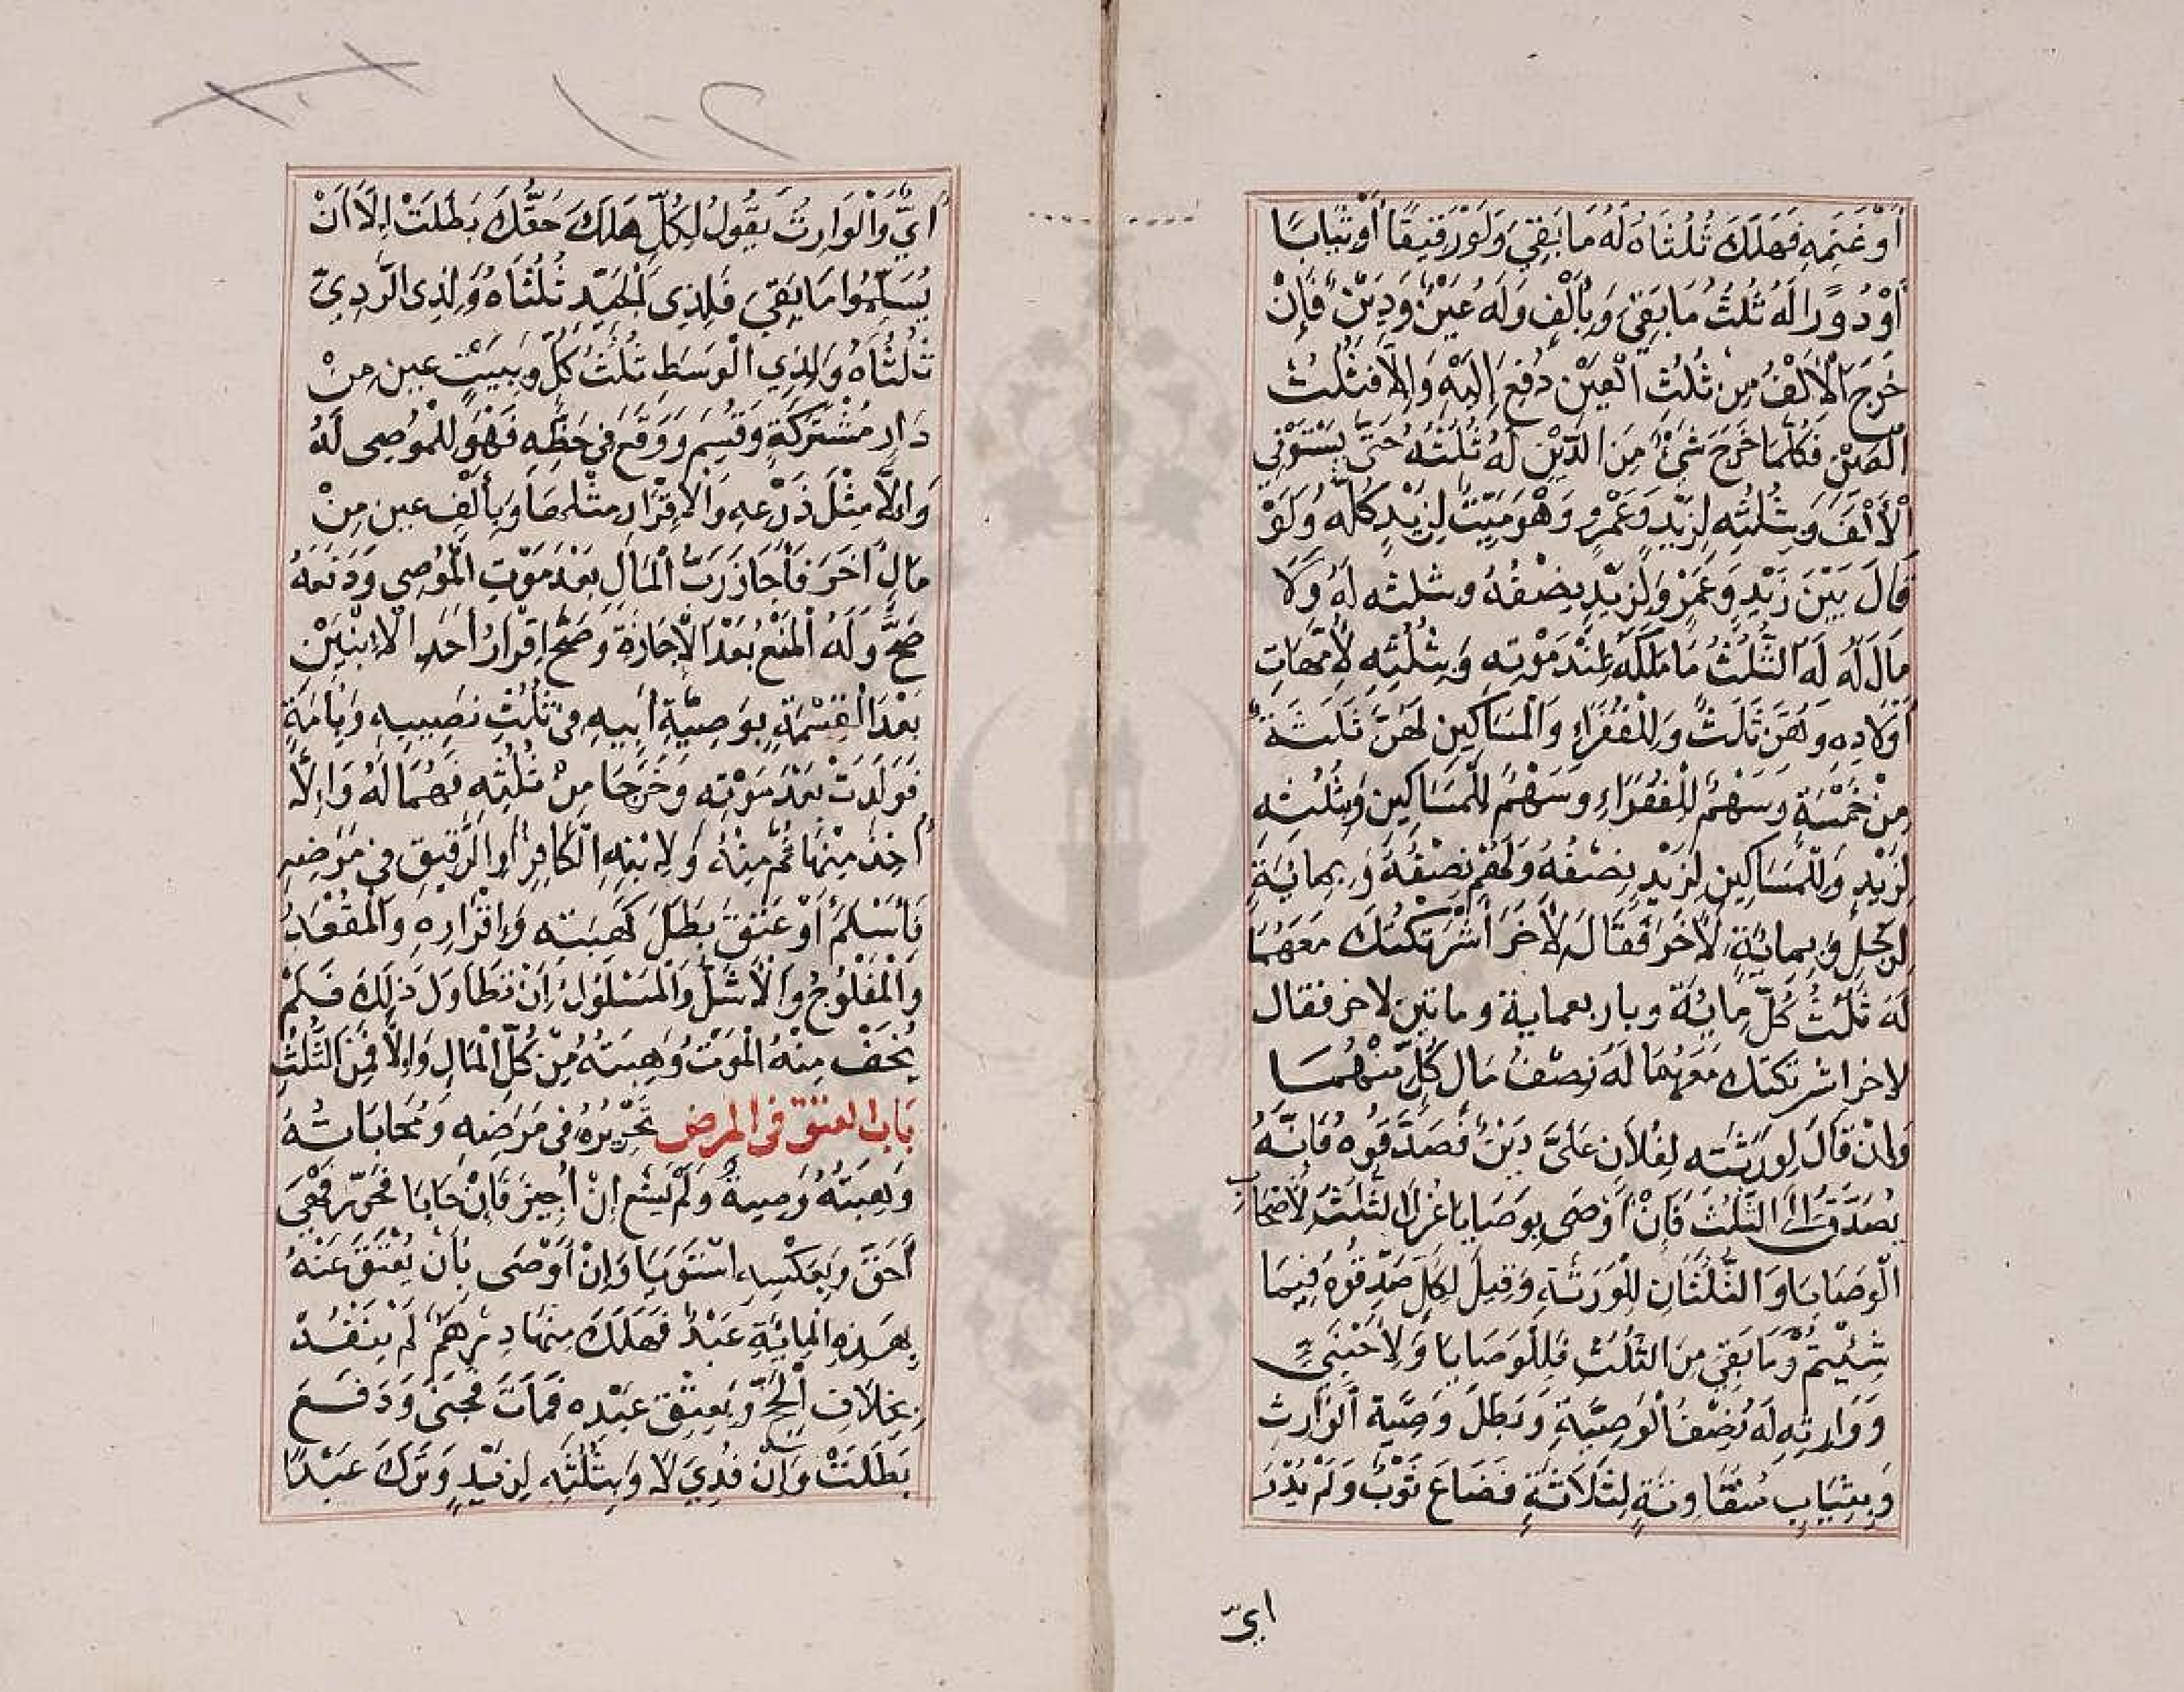 أَوْ غَنَمِهِ فَهَلَكَ ثُلُثَاهُ لَهُ مَا بَقِيَ وَلَوْ رَقِيقًا أَوْ ثِيَابًا
أَوْ دُورًا لَهُ ثُلُثُ مَا بَقِيَ وَبِأَلْفٍ وَلَهُ عَيْنٌ وَدَيْنٌ فَإِنْ
خَرَجَ الْأَلْفُ مِنْ ثُلُثِ الْعَيْنِ دُفِعَ إِلَيْهِ وَإِلَّا فَثُلُثُ
الْعَيْنِ فَكُلَّمَا خَرَجَ شَيْءٌ مِنَ الدَّيْنِ لَهُ ثُلُثُهُ حَتَّى يَسْتَوْفِي
الْأَلْفَ وَبِثُلُثِهِ لِزَيْدٍ وَعَمْرٍو وَهُوَ مَيِّتٌ لِزَيْدٍ كُلُّهُ وَلَوْ
قَالَ بَيْنَ زَيْدٍ وَعَمْرٍو لِزَيْدٍ نِصْفُهُ وبثلثه لَهُ وَلَا
مَالَ لَهُ لَهُ الثُّلُثُ مَا مَلَكَهُ عِنْدَ مَوْتِهِ وَبِثُلُثِهِ لِأُمَّهَاتِ
أَوْلَادِهِ وَهُنَّ ثَلَثٌ وَلِلْفُقَرَاءِ وَالْمَسَاكِينِ لَهُنَّ ثَلَثَةٌ
مِنْ خَمْسَةٍ وَسَهْمٌ لِلْفُقَرَاءِ وَسَهْمٌ لِلْمَسَاكِينِ وَبِثُلُثِهِ
لِزَيْدٍ وَلِلْمَسَاكِينِ لِزَيْدٍ نِصْفُهُ وَلَهُمْ نِصْفُهُ وَبِمِائَةٍ
لِرَجُلٍ وَبِمِائَةٍ لِآخَرَ فَقَالَ لِآخَرَ أَشْرَكْتُكَ مَعَهُمَا
لَهُ ثُلُثُ كُلِّ مِائَةٍ وباربعماية وماتين لاخر فقال
لاخر اشركتك مَعَهُمَا لَهُ نِصْفُ مَالِ كُلٍّ مِنْهُمَا
وَإِنْ قَالَ لِوَرَثَتِهِ لِفُلَانٍ عَلَيَّ دَيْنٌ فَصَدِّقُوهُ فَإِنَّهُ
يُصَدَّقُ إِلَى الثُّلُثِ فَإِنْ أَوْصَى بِوَصَايَا عُزِلَ الثُّلُثُ لِأَصْحَابِ
الْوَصَايَا وَالثُّلُثَانِ لِلْوَرَثَةِ وَقِيلَ لِكُلٍّ صَدِّقُوهُ فِيمَا
شِئْتُمْ وَمَا بَقِيَ مِنَ الثُّلُثِ فَلِلْوَصَايَا وَلِأَجْنَبِيٍّ
وَوَارِثِهِ لَهُ نِصْفُ الْوَصِيَّةِ وَبَطَلَ وَصِيَّةُ الْوَارِثِ
وَبِثِيَابٍ مُتَفَاوِتَةٍ لِثَلَاثَةٍ فَضَاعَ ثَوْبٌ وَلَمْ يُدْرَ
ايّ
أَيٌّ وَالْوَارِثُ يَقُولُ لِكُلٍّ هَلَكَ حَقُّكَ بَطَلَتْ إِلَّا أَنْ
يُسَلِّمُوا مَا بَقِيَ فَلِذِي الْجَيِّدِ ثُلُثَاهُ وَلِذِي الرَّدِيِّ
ثُلُثَاهُ وَلِذِي الْوَسَطِ ثُلُثُ كُلٍّ وَبِبَيْتٍ عين مِنْ
دَارٍ مُشْتَرَكَةٍ وَقُسِمَ وَوَقَعَ فِي حَظِّهِ فَهُوَ لِلْمُوصِى لَهُ
وَإِلَّا مِثْلَ ذَرْعِهِ وَالْإِقْرَارِ مثْلهَا وَبِأَلْفِ عين مِنْ
مَالِ آخَرَ فَأَجَازَ رَبُّ الْمَالِ بَعْدَ مَوْتِ الْمُوصِي وَدَفَعَهُ
صَحَّ وَلَهُ الْمَنْعُ بَعْدَ الْإِجَازَةِ وَصَحَّ إِقْرَارُ أَحَدِ الْإِبْنَيْنِ
بَعْدَ الْقِسْمَةِ بِوَصِيَّةِ أَبِيهِ فِي ثُلُثِ نَصِيبِهِ وَبِأَمَةٍ
فَوَلَدَتْ بَعْدَ مَوْتِهِ وَخَرَجَا مِنْ ثُلُثِهِ فَهُمَا لَهُ وَإِلَّا
أَخَذَ مِنْهَا ثُمَّ مِنْهُ وَلِابْنِهِ الْكَافِرِ أَوِ الرَّقِيقِ فِي مَرَضِهِ
فَأَسْلَمَ أَوْ عَتَقَ بَطَلَ كَهِبَتِهِ وَإِقْرَارِهِ وَالْمُقْعَدُ
وَالْمَفْلُوجُ وَالْأَشَلُّ وَالْمَسْلُولُ إِنْ تَطَاوَلَ ذَلِكَ فَلَمْ
يُخَفْ مِنْهُ الْمَوْتُ وَهِبَتُهُ مِنْ كُلِّ الْمَالِ وَإِلَّا فَمِنَ الثُّلُثِ
بَابُ العتق في المرض تَحْرِيرُهُ فِي مَرَضِهِ وَمُحَابَاتُهُ
وَهِبَتُهُ وَصِيةٌ وَلَمْ يَسْعَ إِنْ أُجِيزَ فَإِنْ حَابَا فَحَرَّرَ فَهْيَ
أَحَقُّ وَبِعَكْسِهِ اسْتَوَيَا وَإِنْ أَوْصَى بِأَنْ يُعْتَقَ عَنْهُ
بِهَذِهِ الْمِائَةِ عَبْدٌ فَهَلَكَ مِنْهَا دِرْهَمٌ لَمْ يَنْفُذْ
بِخِلَافِ الْحَجِّ وَبِعِتْقِ عَبْدِهِ فَمَاتَ فَجَنَى وَدَفَعَ
بَطَلَتْ وَإِنْ فُدِيَ لَا وَبِثُلُثِهِ لِزَيْدٍ وَتَرَكَ عَبْدًا